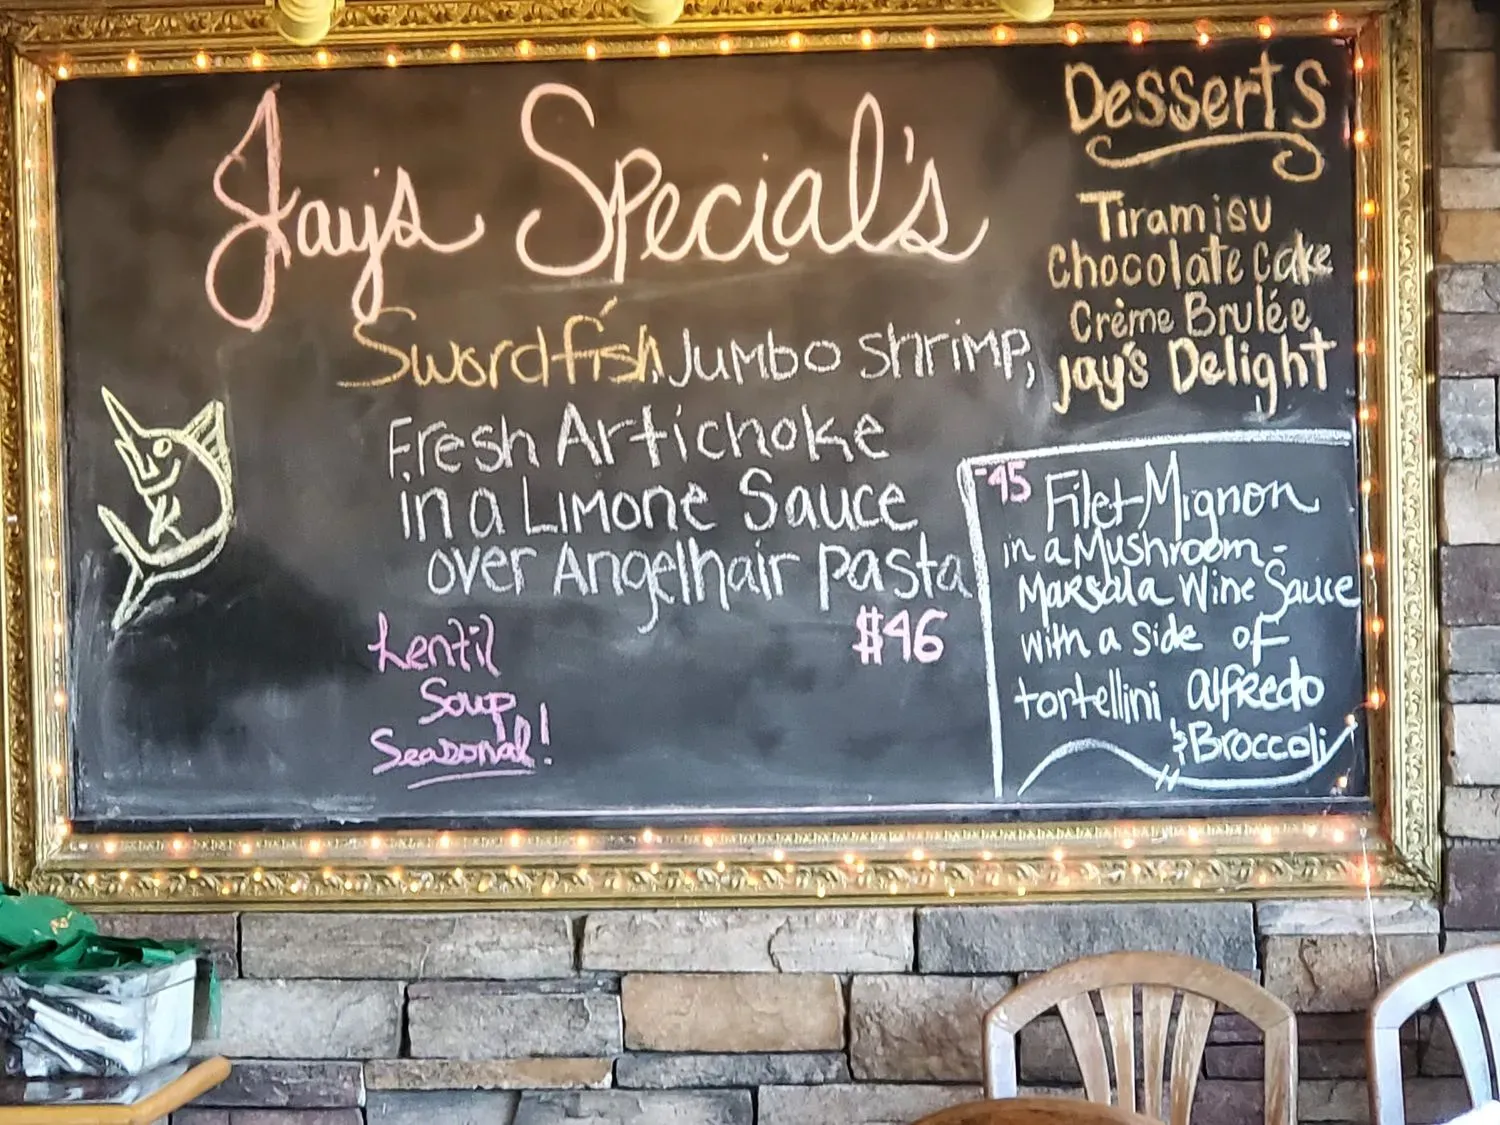 Jay's Special's
Swordfish, Jumbo Shrimp,
Fresh Artichoke
in a Limone Sauce
over Angelhair pasta
$46
Lentil
Soup
Seasonal!
Desserts
Tiramisu
Chocolate Cake
Crème Brulée
Jay's Delight
-45 Filet Mignon
in a Mushroom-
Marsala Wine Sauce
with a side of
tortellini Alfredo
& Broccoli